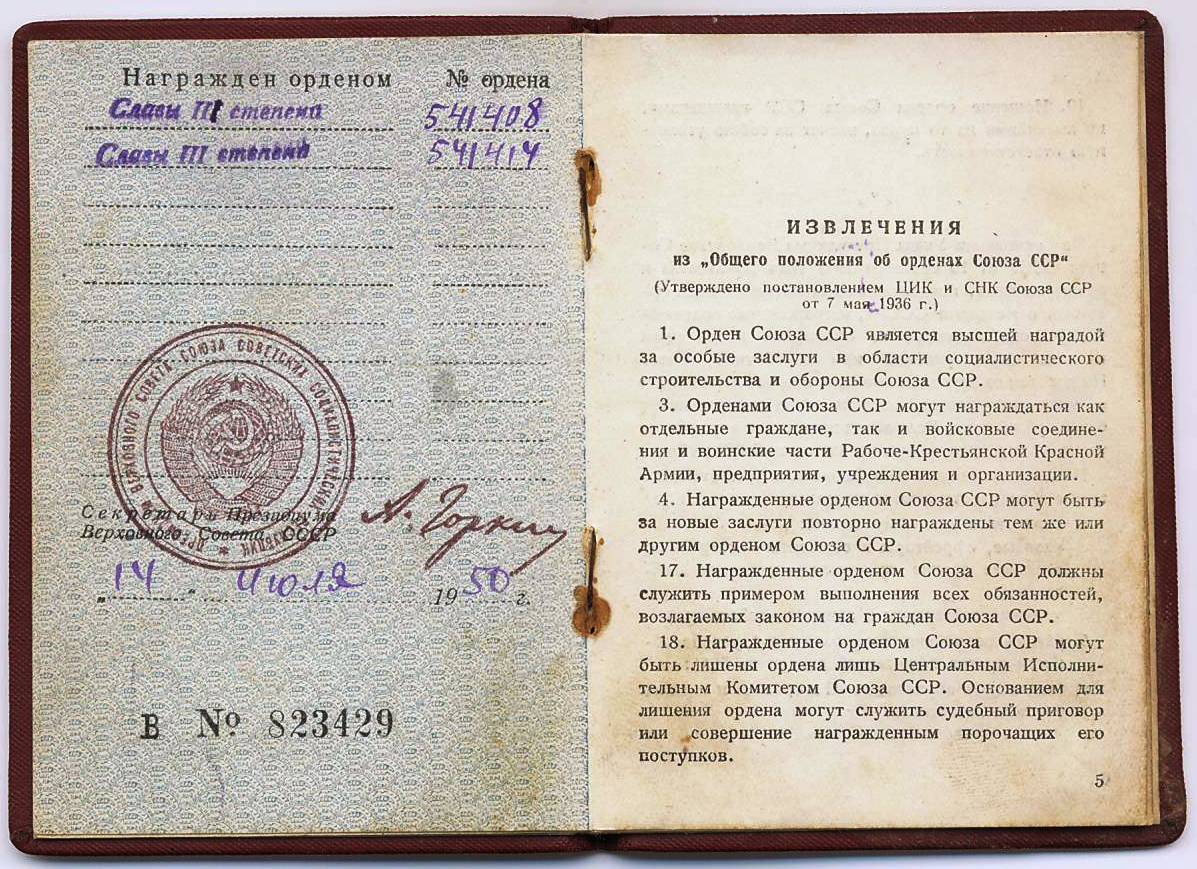 Награжден орденом № ордена
Славы III степени 541408
Славы III степени 541414
ПРЕЗИДИУМ ВЕРХОВНОГО СОВЕТА СОЮЗА СОВЕТСКИХ СОЦИАЛИСТИЧЕСКИХ
Секретарь Президиума
Верховного Совета СССР
А. Горкин
„14“ июля 1950 г.
В № 823429
ИЗВЛЕЧЕНИЯ
из „Общего положения об орденах Союза ССР“
(Утверждено постановлением ЦИК и СНК Союза ССР
от 7 мая 1936 г.)
1. Орден Союза ССР является высшей наградой
за особые заслуги в области социалистического
строительства и обороны Союза ССР.
3. Орденами Союза ССР могут награждаться как
отдельные граждане, так и войсковые соедине-
ния и воинские части Рабоче-Крестьянской Красной
Армии, предприятия, учреждения и организации.
4. Награжденные орденом Союза ССР могут быть
за новые заслуги повторно награждены тем же или
другим орденом Союза ССР.
17. Награжденные орденом Союза ССР должны
служить примером выполнения всех обязанностей,
возлагаемых законом на граждан Союза ССР.
18. Награжденные орденом Союза ССР могут
быть лишены ордена лишь Центральным Исполни-
тельным Комитетом Союза ССР. Основанием для
лишения ордена могут служить судебный приговор
или совершение награжденным порочащих его
поступков.
5